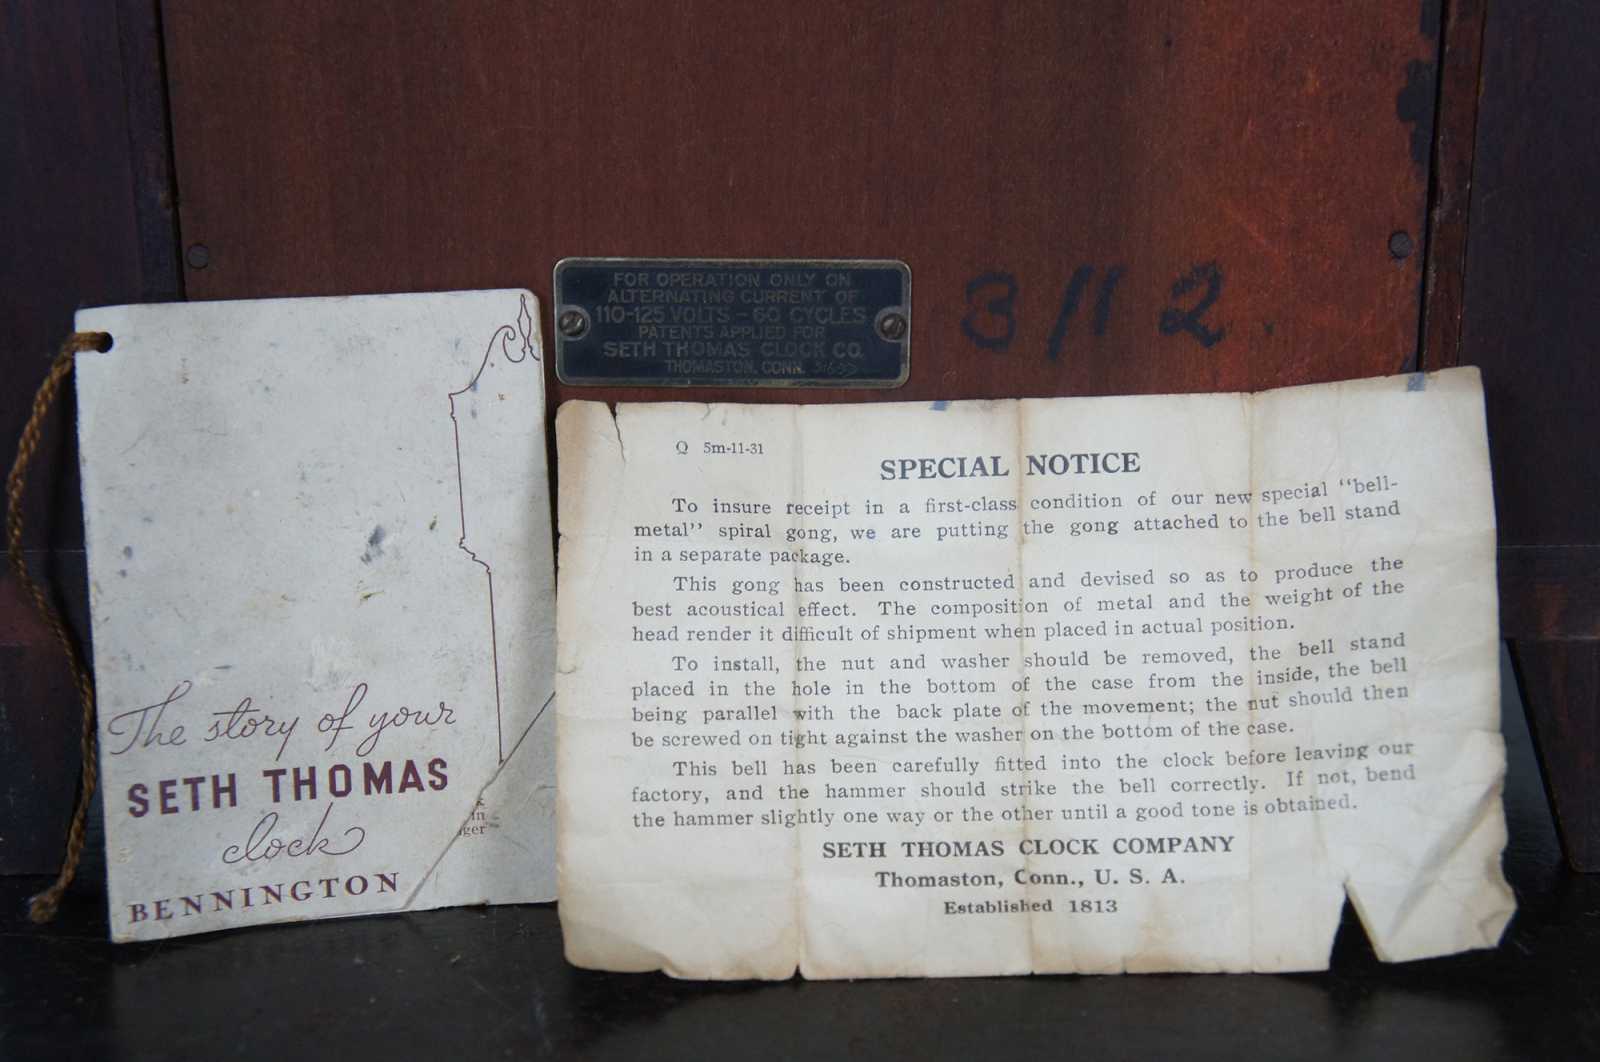 FOR OPERATION ONLY ON
ALTERNATING CURRENT OF
110-125 VOLTS - 60 CYCLES
PATENTS APPLIED FOR
SETH THOMAS CLOCK CO.
THOMASTON, CONN.
3112.
The story of your
SETH THOMAS
clock
BENNINGTON
in
Q 5m-11-31
SPECIAL NOTICE
To insure receipt in a first-class condition of our new special "bell-
metal" spiral gong, we are putting the gong attached to the bell stand
in a separate package.
This gong has been constructed and devised so as to produce the
best acoustical effect. The composition of metal and the weight of the
head render it difficult of shipment when placed in actual position.
To install, the nut and washer should be removed, the bell stand
placed in the hole in the bottom of the case from the inside, the bell
being parallel with the back plate of the movement; the nut should then
be screwed on tight against the washer on the bottom of the case.
This bell has been carefully fitted into the clock before leaving our
factory, and the hammer should strike the bell correctly. If not, bend
the hammer slightly one way or the other until a good tone is obtained.
SETH THOMAS CLOCK COMPANY
Thomaston, Conn., U. S. A.
Established 1813